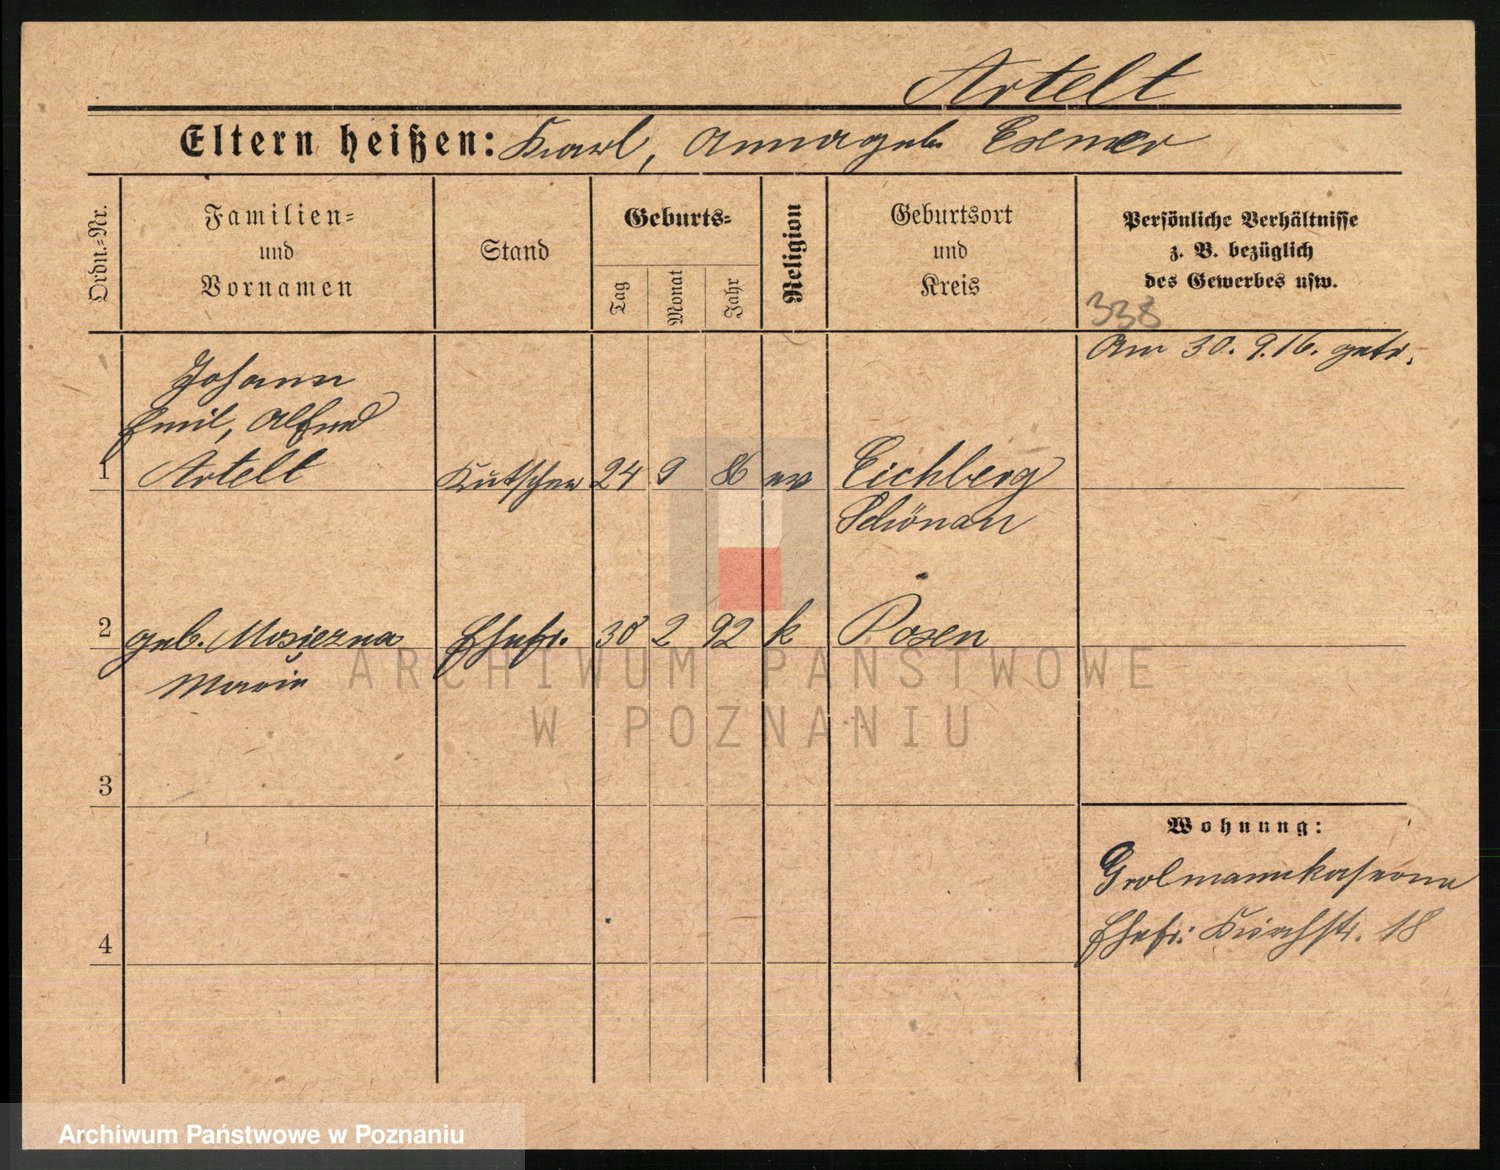 Artelt
Eltern heißen: Karl, Anna geb. Exner
Ordn.=Nr.
Familien=
und
Vornamen
Stand
Geburts=
Tag
Monat
Jahr
Religion
Geburtsort
und
Kreis
Persönliche Verhältnisse
z. B. bezüglich
des Gewerbes usw.
338
Am 30. 9. 16. getr.
Johann
Emil, Alfred
1 Artelt Kutscher 24 9 86 ev Eichberg
Schönau
2 geb. Mosiezna Ehefr. 30 2 92 k Posen
Marie
3
Wohnung:
Grolmannkaserne
4 Ehefr: Kirchstr. 18
ARCHIWUM PAŃSTWOWE
W POZNANIU
Archiwum Państwowe w Poznaniu